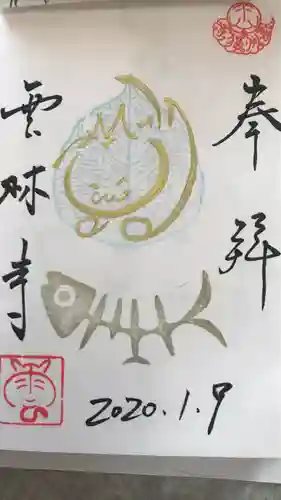 奉拜
雲林寺
2020.1.9